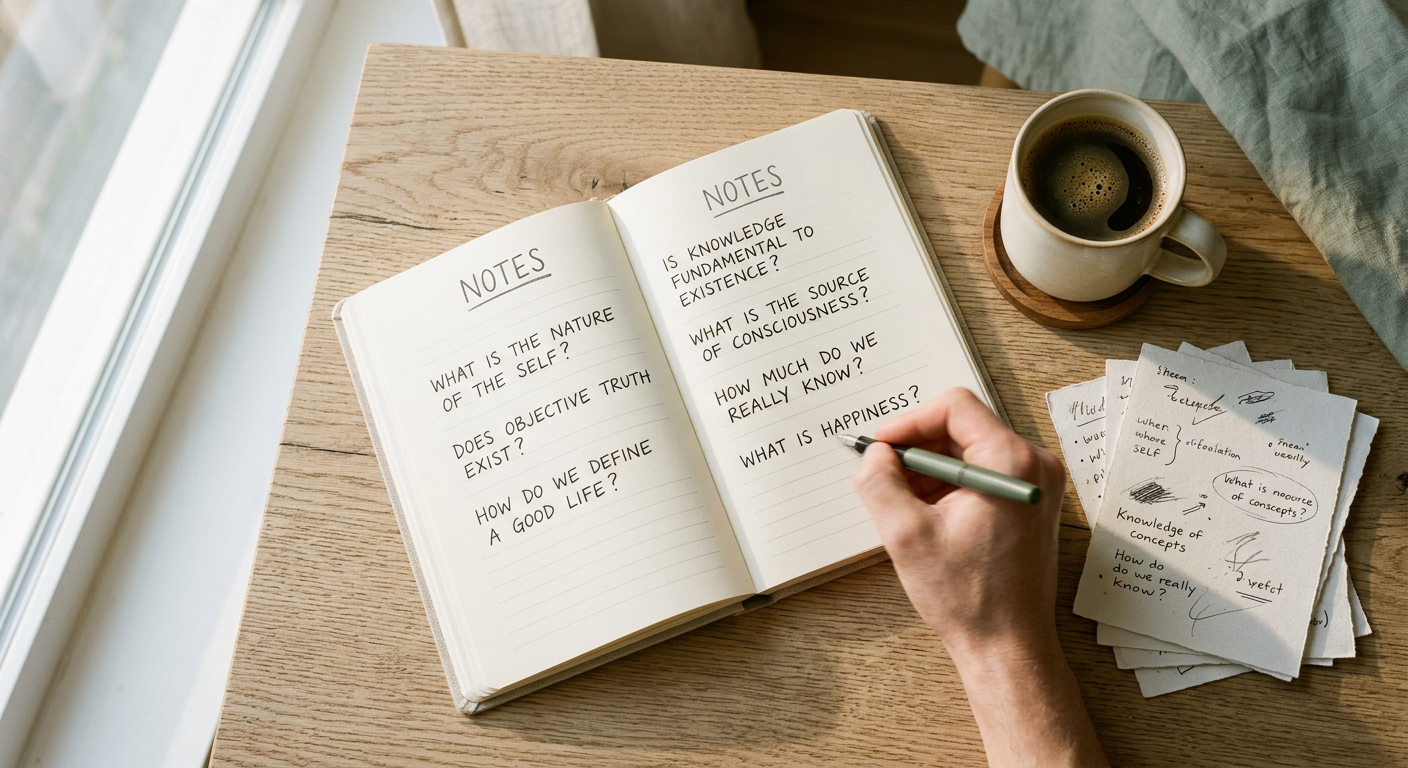 NOTES
WHAT IS THE NATURE
OF THE SELF?
DOES OBJECTIVE TRUTH
EXIST?
HOW DO WE DEFINE
A GOOD LIFE?
NOTES
IS KNOWLEDGE
FUNDAMENTAL TO
EXISTENCE?
WHAT IS THE SOURCE
OF CONSCIOUSNESS?
HOW MUCH DO WE
REALLY KNOW?
WHAT IS HAPPINESS?
when
whore
SELF
What is
of conscepts?
Knowledge of
concepts
How do
do we really
know?